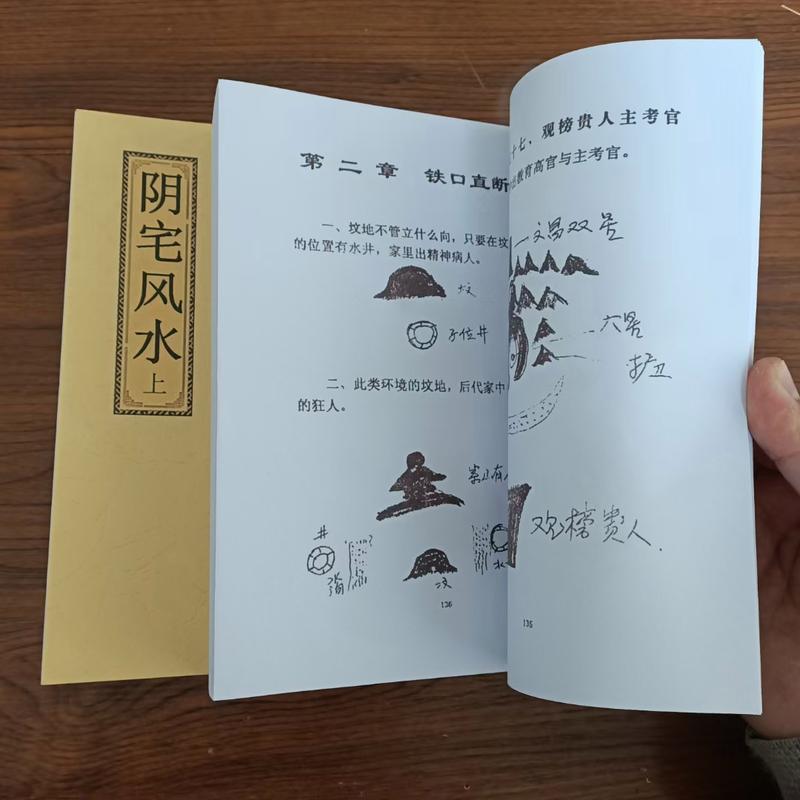 阴宅风水
上
第二章 铁口直断
一、坟地不管立什么向，只要在坟
的位置有水井，家里出精神病人。
坟
子位井
二、此类环境的坟地，后代家中
的狂人。
井
坟
136
十七、观榜贵人主考官
教育高官与主考官。
文昌双
六
观榜贵人.
136